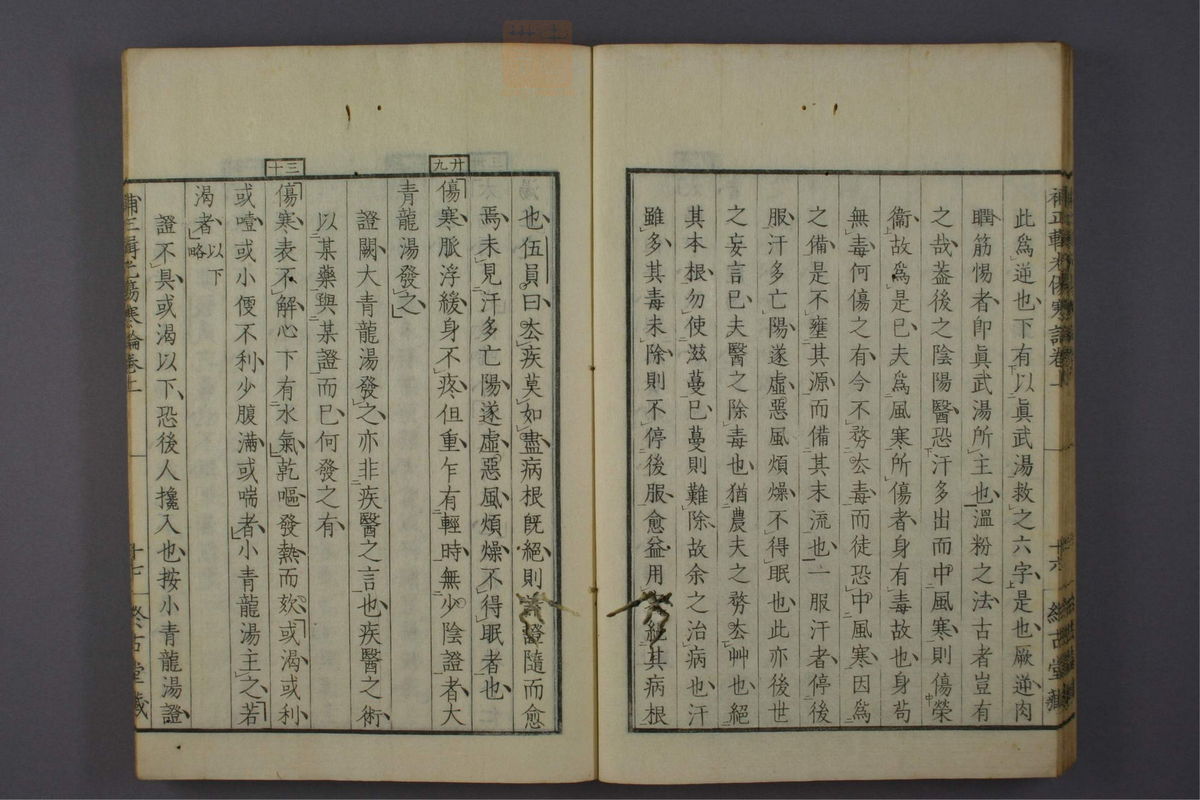 補正輯光傷寒論卷上
此爲逆也下有以眞武湯救之六字是也厥逆肉
瞤筋惕者卽眞武湯所主也溫粉之法古者豈有
之哉葢後之陰陽醫恐汗多出而中風寒則傷榮
衞故爲是已夫爲風寒所傷者身有毒故也身苟
無毒何傷之有今不務厺毒而徒恐中風寒因爲
之備是不壅其源而備其末流也一服汗者停後
服汗多亡陽遂虛惡風煩燥不得眠也此亦後世
之妄言已夫醫之除毒也猶農夫之務厺艸也絕
其本根勿使滋蔓已蔓則難除故余之治病也汗
雖多其毒未除則不停後服愈益用絕其病根
也伍員曰厺疾莫如盡病根既絕則證隨而愈
焉未見汗多亡陽遂虛惡風煩燥不得眠者也
廿九
傷寒脈浮緩身不疼但重乍有輕時無少陰證者大
青龍湯發之
證闕大青龍湯發之亦非疾醫之言也疾醫之術
以某藥與某證而已何發之有
三十
傷寒表不解心下有水氣乾嘔發熱而欬或渴或利
或噎或小便不利少腹滿或喘者小青龍湯主之若
渴者以下略
證不具或渴以下恐後人攙入也按小青龍湯證
傷寒論卷上